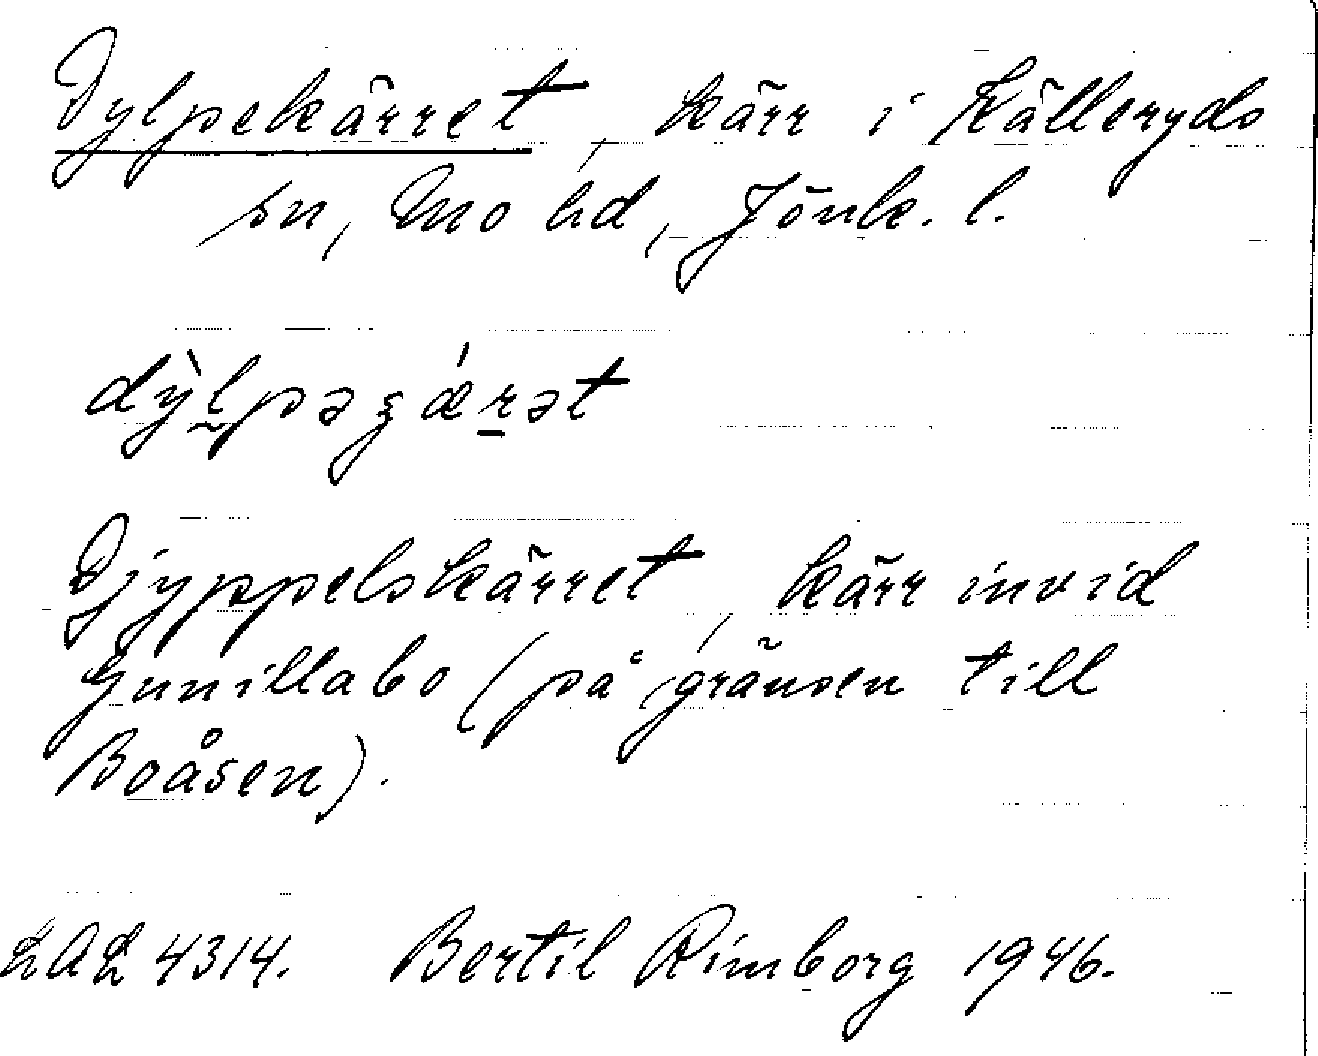 Dylpekärret, kärr i Källeryds
sn, Mo hd, Jönk. l.
Djyppelskärret, kärr invid
Gunillabo (på gränsen till
Boåsen).
LAL 4314. Bertil Rimborg 1946.